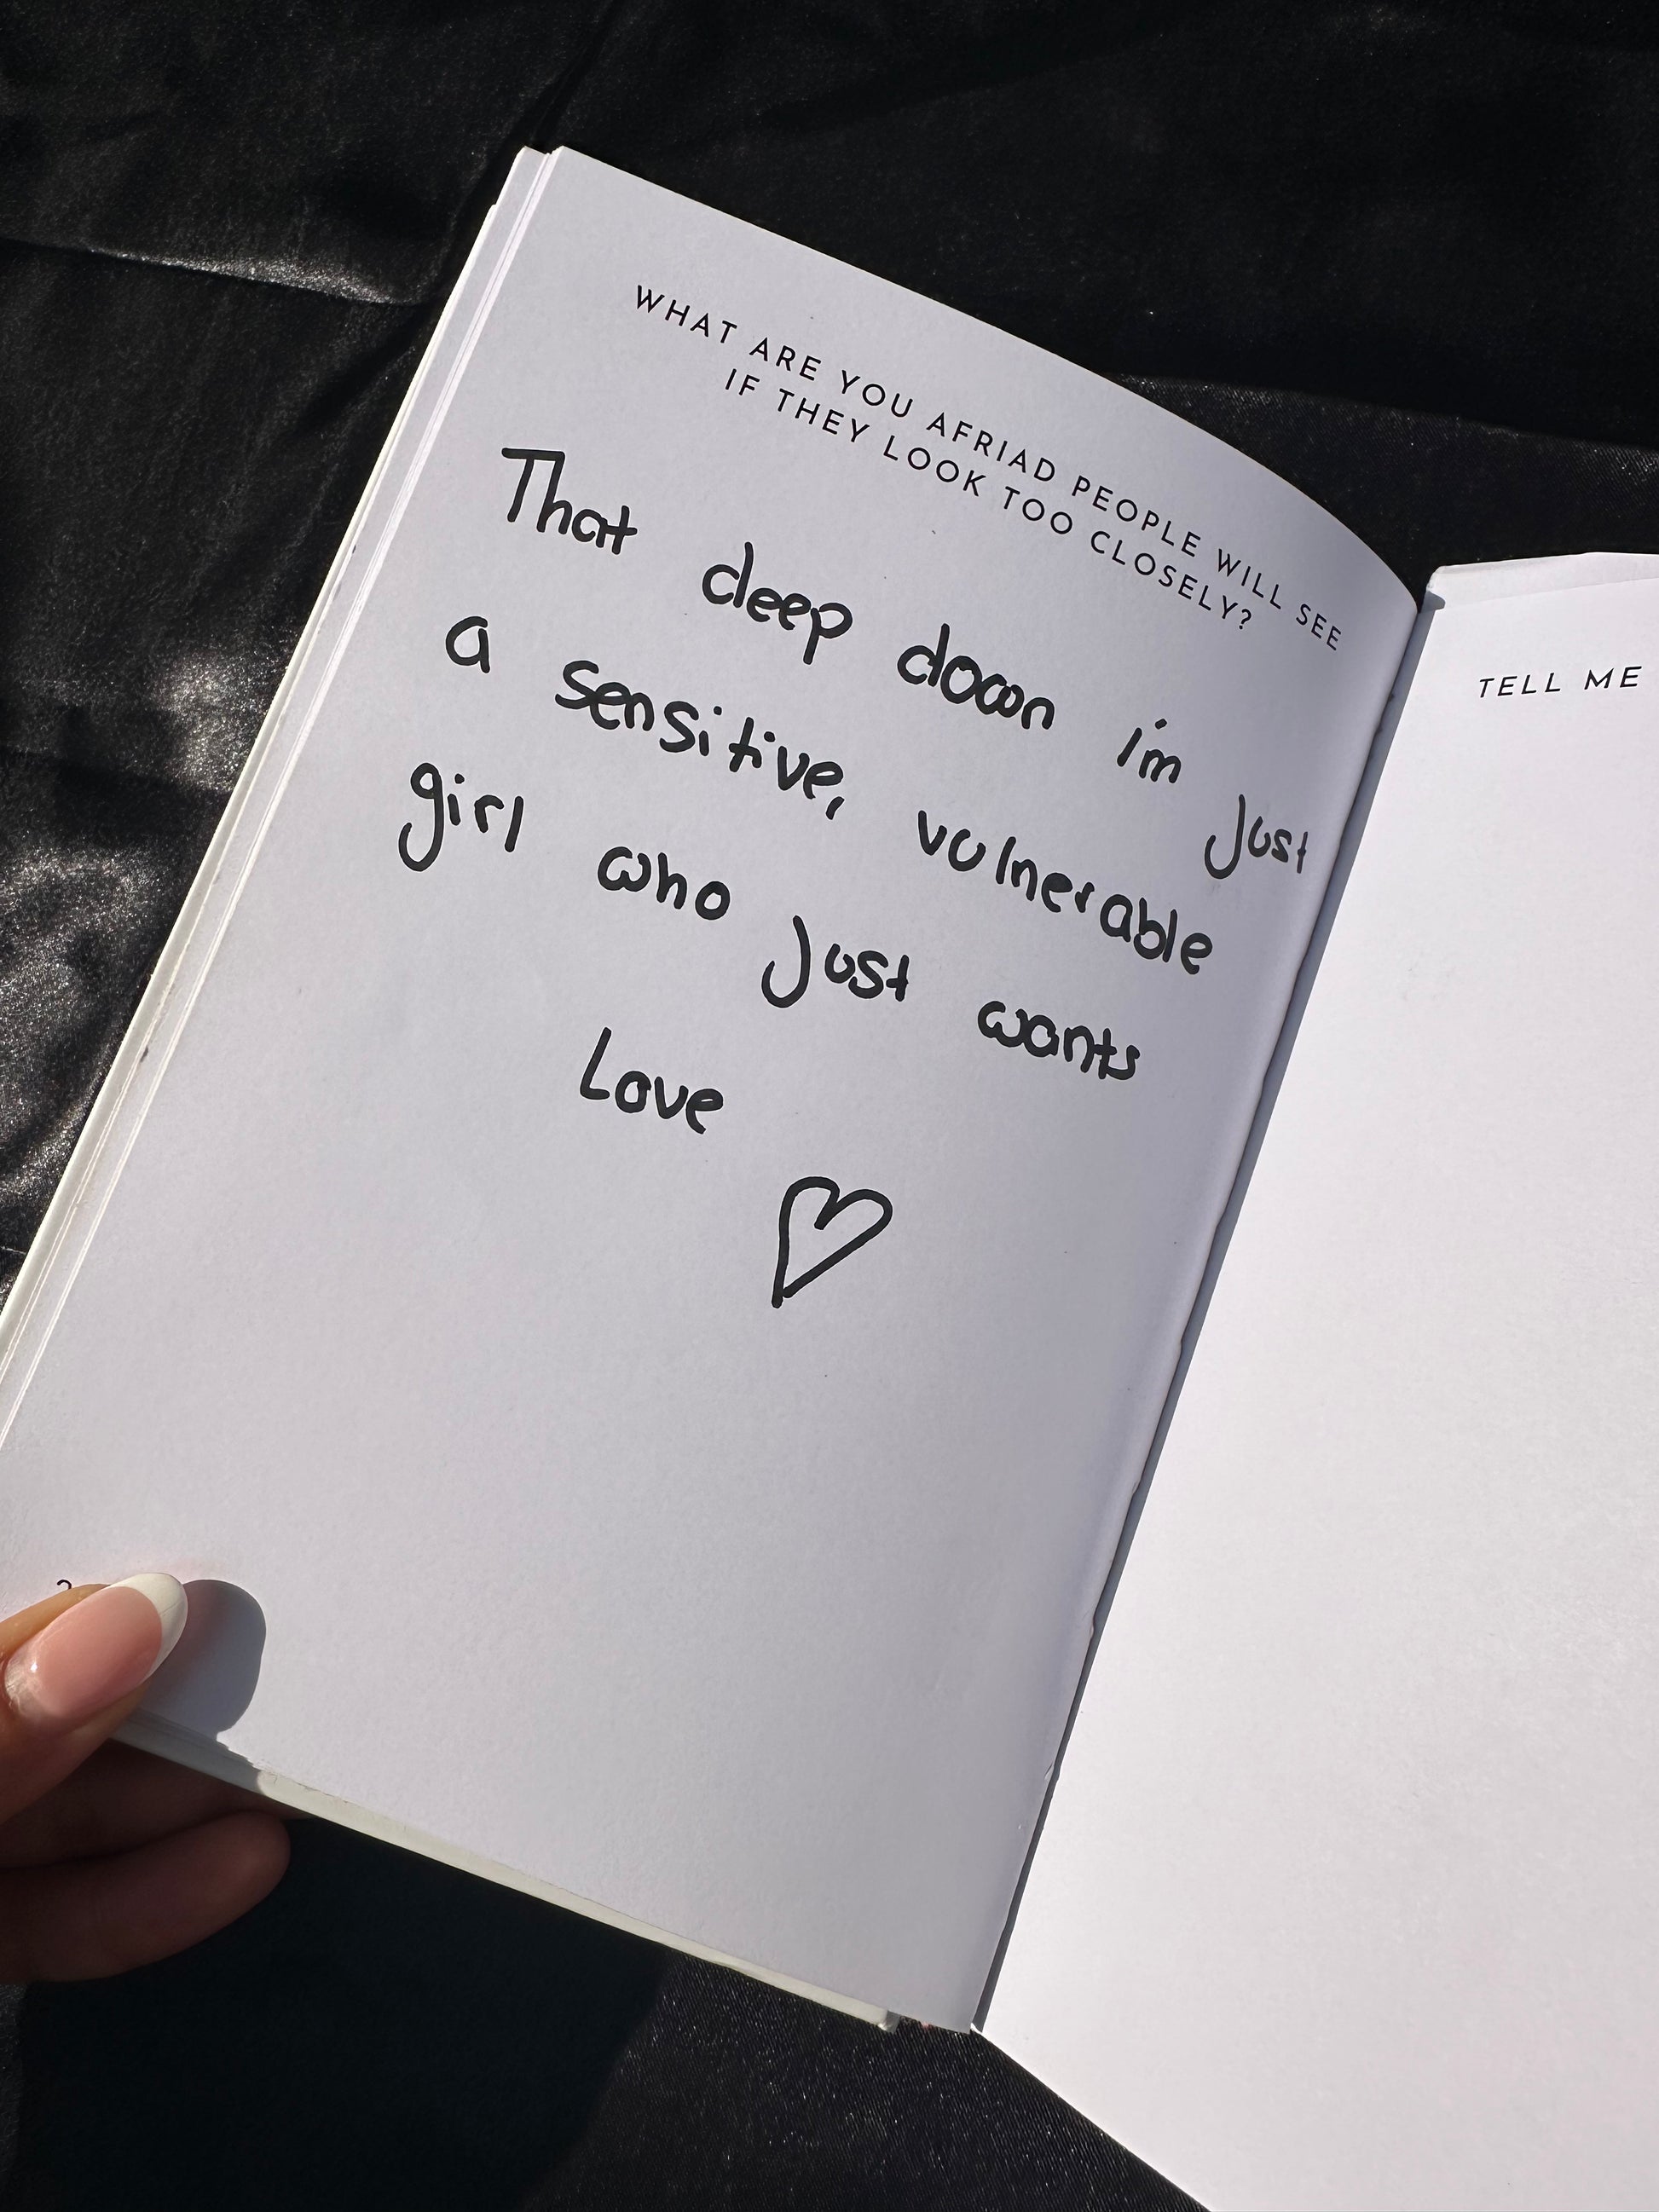 WHAT ARE YOU AFRIAD PEOPLE WILL SEE
IF THEY LOOK TOO CLOSELY?
That deep down i'm just
a sensitive, vulnerable
girl who just wants
Love
TELL ME